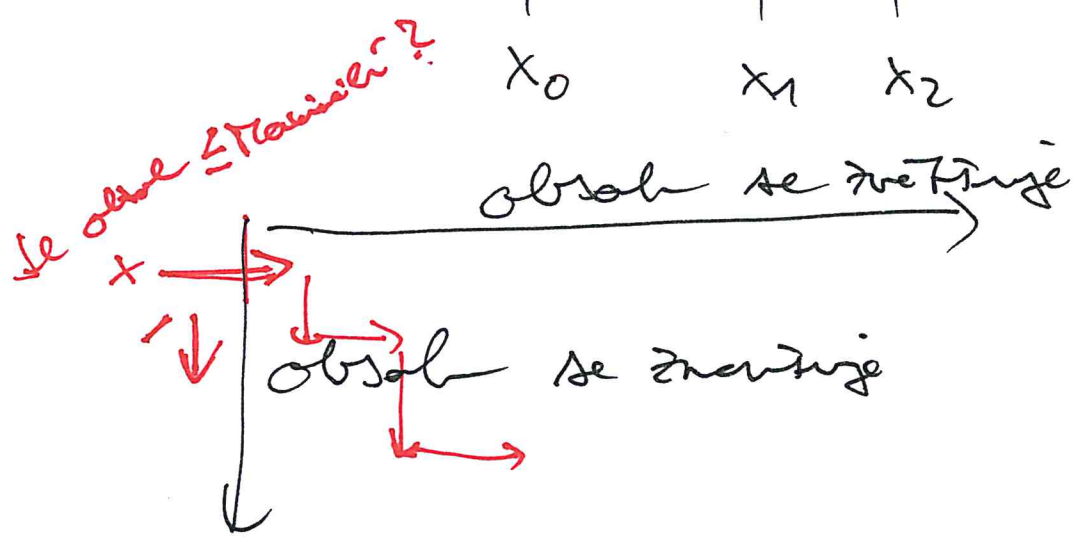 x₀ x₁ x₂
Je obsah ≤
obsah se zvětšuje
x
obsah se zmenšuje